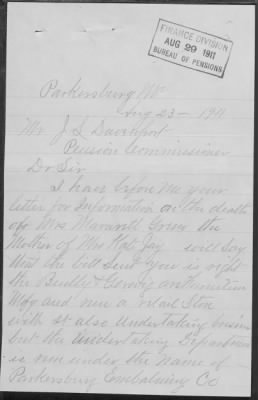 FINANCE DIVISION
AUG 29 1911
BUREAU OF PENSIONS
Parkersburg
Aug 23 - 1911
Mr J L Davenport
Pension Commissioner
Dr Sir
I have before me your
letter for Information on the death
of Mrs Greer the
Mother of Mrs Kate Jay will Say
that the bill Sent you is right
the Bently & Gerwig
Mfg and run a retail Store
with it also Undertaking business
but the Undertaking Department
is run under the name of
Parkersburg Embalming Co